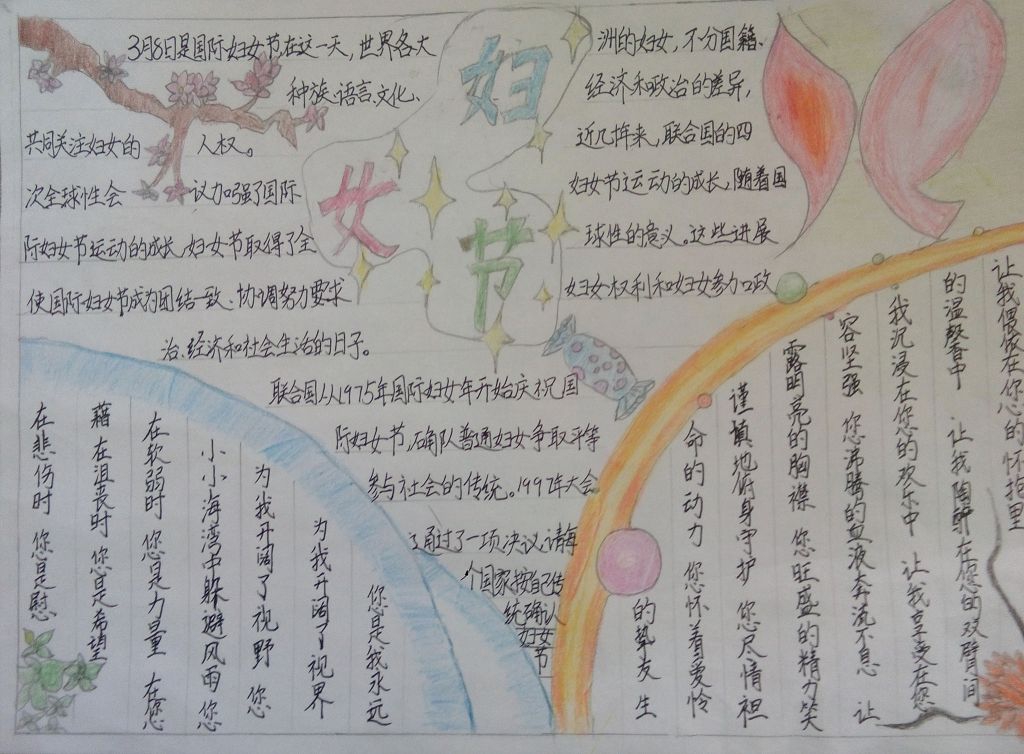 妇
女
节
3月8日是国际妇女节在这一天，世界各大
洲的妇女，不分国籍、
种族、语言、文化、
经济和政治的差异，
共同关注妇女的
人权。
近几拃来，联合国的四
次全球性会
议加强了国际
妇女节运动的成长，随着国
际妇女节运动的成长，妇女节取得了全
球性的意义。这些进展
使国际妇女节成为团结一致、协调努力要求
妇女权利和妇女参加政
治、经济和社会生活的日子。
联合国从1975年国际妇女年开始庆祝国
际妇女节，确队普通妇女争取平等
参与社会的传统。1997年大会
通过了一项决议，请每
个国家按自己传
统确认
妇女
节
在悲伤时 您是慰
藉 在沮丧时 您是希望
在软弱时 您是力量 在您
小小海湾中躲避风雨 您
为我开阔了视野 您
为我开阔了视界
您是我永远
的挚友 生
命的动力 您怀着爱怜
谨慎地俯身守护 您尽情袒
露明亮的胸襟 您旺盛的精力笑
容坚强 您沸腾的血液奔流不息 让
我沉浸在您的欢乐中 让我享受在您
的温馨中 让我陶醉在您的双臂间
让我偎依在您的怀抱里